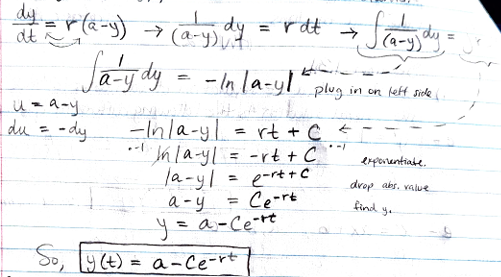 dy/dt = r(a-y) → 1/(a-y) dy = r dt → ∫ 1/(a-y) dy =
∫ 1/a-y dy = -ln|a-y| plug in on left side
u = a-y
du = -dy -ln|a-y| = rt + C
·-1 ln|a-y| = -rt + C ·-1 exponentiate.
|a-y| = e^-rt+C drop abs. value
a-y = Ce^-rt find y.
y = a-Ce^-rt
So, y(t) = a-Ce^-rt